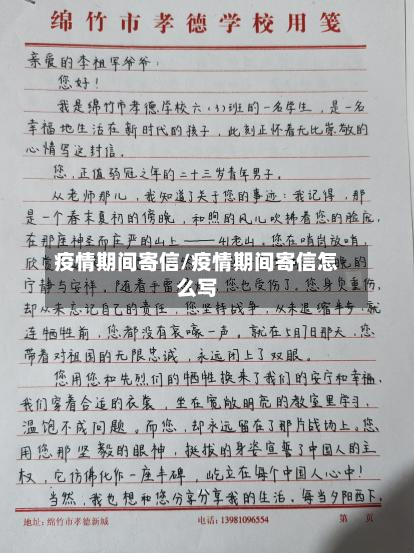 绵竹市孝德学校用笺
亲爱的李祖军爷爷:
您好!
我是绵竹市孝德学校六(3)班的一名学生,是一名
幸福地生活在新时代的孩子,此刻正怀着无比崇敬的
心情写这封信。
您,正值弱冠之年的二十三岁青年男子。
从老师那儿,我知道了关于您的事迹:我记得,那
是一个春末夏初的傍晚,和煦的风儿吹拂着您的脸庞,
在那座神圣而庄严的山上——41老山。您在哨岗放哨,
欣赏
疫情期间寄信/疫情期间寄信怎
么写
宁静与安祥,随着手雷
您也受伤了。您身负重伤,
却从未忘记自己的责任,您坚持战争,从未退缩半步,就
连牺牲前,您都没有哀嚎一声。就在5月1日那天,您
带着对祖国的无限忠诚,永远闭上了双眼。
您用您和先烈们的牺牲换来了我们的安宁和幸福,
我们穿着合适的衣裳,坐在宽敞明亮的教室里学习,
温饱不成问题。而您,却永远留在了那片战场上。您
用您那坚毅的眼神,挺拔的身姿宣誓了中国人的主
权,它仿佛化作一座丰碑,屹立在每个中国人心中!
当然,我也想和您分享分享我的生活。每当夕阳西下,
地址:绵竹市孝德新城
电话:13981096554
第 页